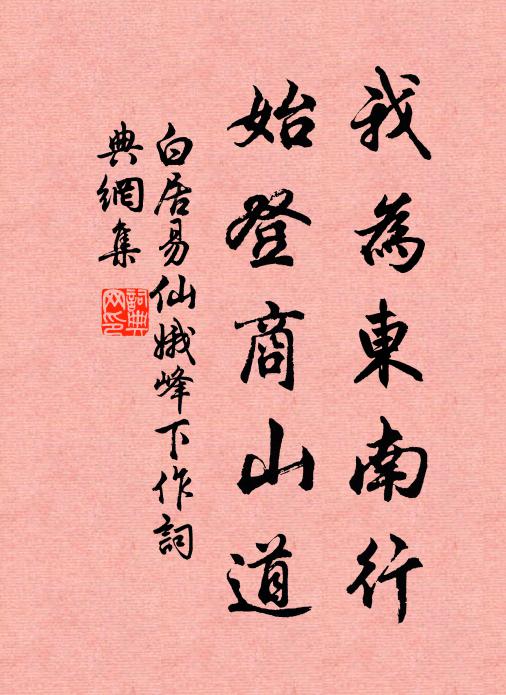 我為東南行
始登商山道
白居易仙娥峰下作詞
典網集
詞典網印